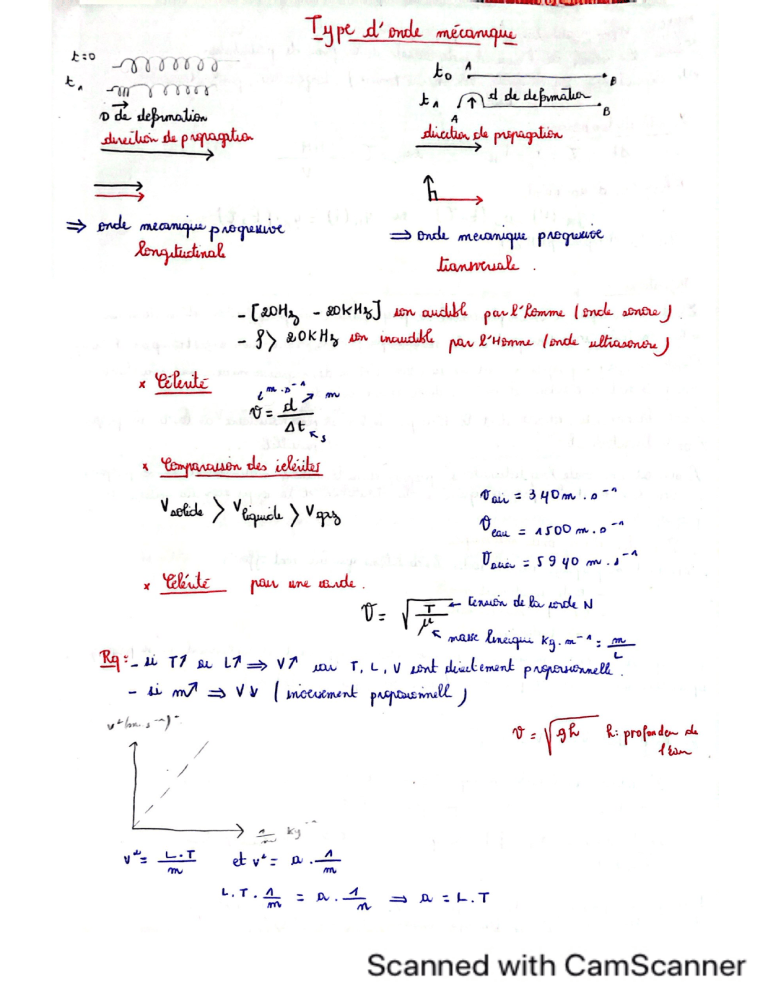 Type d'onde mécanique
t=0
t₁
D de deformation
direction de propagation
⇒ onde mecanique progressive
longitudinale
t₀ A B
t₁ d de deformation
A B
direction de propagation
⇒ onde mecanique progressive
transversale.
- [20Hz - 20kHz] son audible par l'homme (onde sonore)
- f > 20kHz son inaudible par l'Homme (onde ultrasonore)
× Célérité
v = d / Δt
m.s⁻¹ m s
× Comparaison des célérites
V solide > V liquide > V gaz
v air = 340 m.s⁻¹
v eau = 1500 m.s⁻¹
v acier = 5940 m.s⁻¹
× Célérité pour une corde.
v = √(T/μ) ← tension de la corde N
masse lineique kg.m⁻¹ = m/L
Rq: - si T↗ ou L↗ ⇒ V↗ car T, L, V sont directement proporsionnell.
- si m↗ ⇒ V↘ (inversement proporsionnell)
v = √gh h: profondeur de
l'eau
1/m kg⁻¹
v² = L.T/m et v² = a . 1/m
L.T. 1/m = a . 1/m ⇒ a = L.T
Scanned with CamScanner